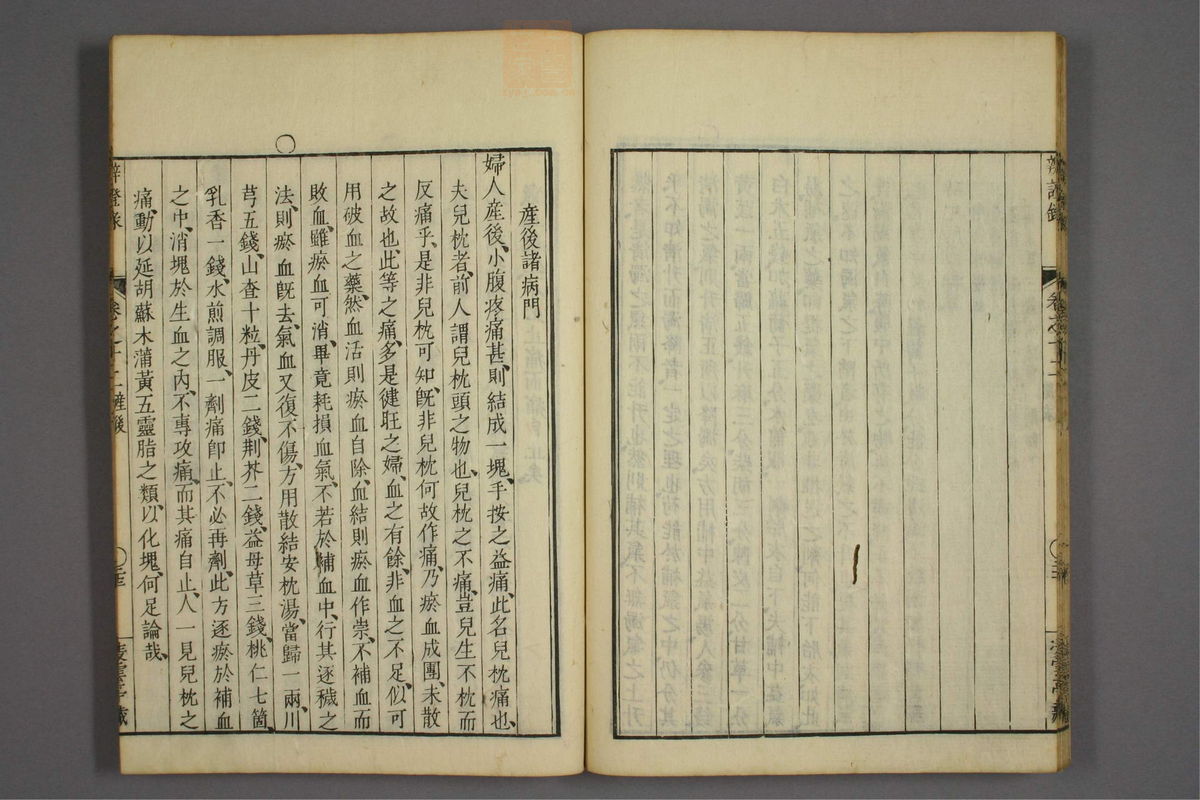 辨證錄
卷之十二
產後諸病門
婦人產後、小腹疼痛甚、則結成一塊、手按之益痛、此名兒枕痛也、
夫兒枕者、前人謂兒枕頭之物也、兒枕之不痛、豈兒生不枕而
反痛乎、是非兒枕可知、旣非兒枕何故作痛、乃瘀血成團、未散
之故也、此等之痛、多是健旺之婦、血之有餘、非血之不足、似可
用破血之藥、然血活則瘀血自除、血結則瘀血作祟、不補血而
敗血、雖瘀血可消、畢竟耗損血氣、不若於補血中、行其逐穢之
法、則瘀血旣去、氣血又復不傷、方用散結安枕湯、當歸一兩、川
芎五錢、山查十粒、丹皮二錢、荆芥二錢、益母草三錢、桃仁七箇、
乳香一錢、水煎調服、一劑痛卽止、不必再劑、此方逐瘀於補血
之中、消塊於生血之內、不專攻痛、而其痛自止、人一見兒枕之
痛、動以延胡蘇木蒲黃五靈脂之類、以化塊、何足論哉、
辨證錄
卷之十二